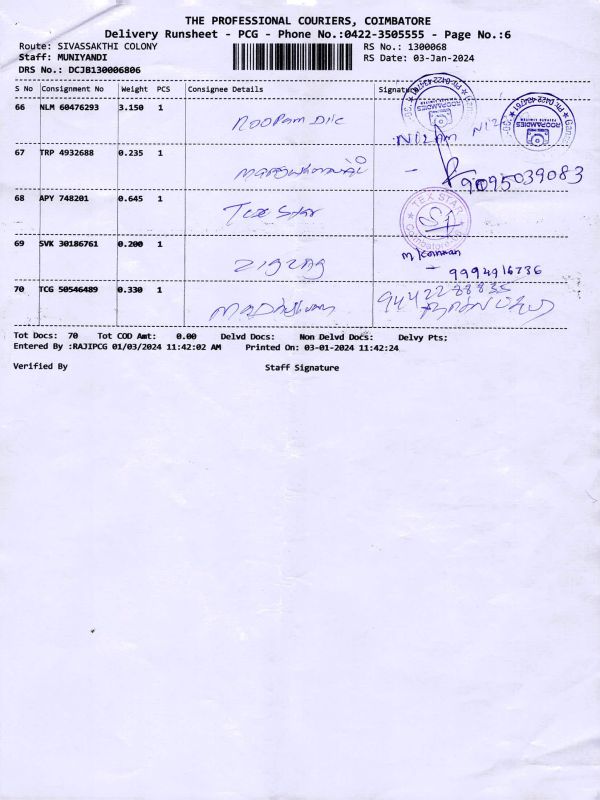 THE PROFESSIONAL COURIERS, COIMBATORE
Delivery Runsheet - PCG - Phone No.:0422-3505555 - Page No.:6
Route: SIVASSAKTHI COLONY RS No.: 1300068
Staff: MUNIYANDI RS Date: 03-Jan-2024
DRS No.: DCJB130006806
S No Consignment No Weight PCS Consignee Details Signature
66 NLM 60476293 3.150 1 Roopam Dic
NIZAM
67 TRP 4932688 0.235 1
9095039083
68 APY 748201 0.645 1 Tex Star
TEX STAR
Coimbatore
69 SVK 30186761 0.200 1 ZIGZAG
M Kannan
9994916736
70 TCG 50546489 0.330 1
94422 88835
Tot Docs: 70 Tot COD Amt: 0.00 Delvd Docs: Non Delvd Docs: Delvy Pts;
Entered By :RAJIPCG 01/03/2024 11:42:02 AM Printed On: 03-01-2024 11:42:24
Verified By Staff Signature